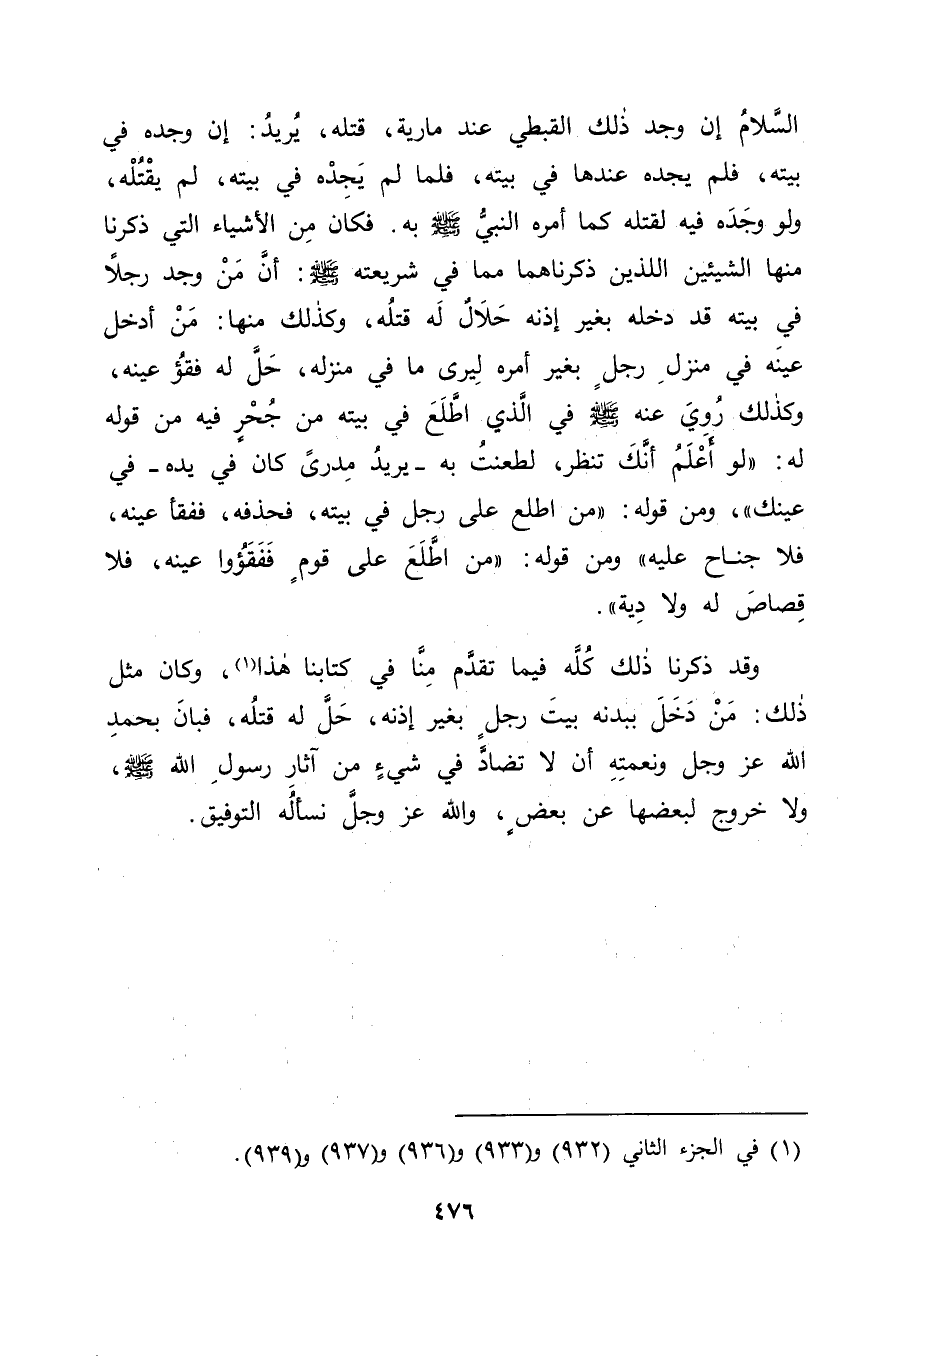 السَّلامُ إن وجد ذٰلك القبطي عند مارية، قتله، يُريدُ: إن وجده في
بيته، فلم يجده عندها في بيته، فلما لم يَجِدْه في بيته، لم يقْتُلْه،
ولو وجَدَه فيه لقتله كما أمره النبيُّ ﷺ به. فكان مِن الأشياء التي ذكرنا
منها الشيئين اللذين ذكرناهما مما في شريعته ﷺ: أنَّ مَنْ وجد رجلاً
في بيته قد دخله بغير إذنه حَلَالٌ لَه قتلُه، وكذٰلك منها: مَنْ أدخل
عينَه في منزلِ رجلٍ بغير أمره لِيرى ما في منزله، حَلَّ له فقؤُ عينه،
وكذٰلك رُوِيَ عنه ﷺ في الَّذي اطَّلَعَ في بيته من جُحْرٍ فيه من قوله
له: «لو أَعْلَمُ أنَّكَ تنظر، لطعنتُ به ـ يريدُ مِدرىً كان في يده ـ في
عينك»، ومن قوله: «من اطلع على رجل في بيته، فحذفه، ففقأ عينه،
فلا جنـاح عليه» ومن قوله: «من اطَّلَعَ على قومٍ فَفَقَؤُوا عينه، فلا
قِصاصَ له ولا دِية».
وقد ذكرنا ذٰلك كُلَّه فيما تقدَّم مِنَّا في كتابنا هٰذا(١)، وكان مثل
ذٰلك: مَنْ دَخَلَ ببدنه بيتَ رجلٍ بغير إذنه، حَلَّ له قتلُه، فبانَ بحمدِ
الله عز وجل ونعمتِهِ أن لا تضادَّ في شيءٍ من آثارِ رسولِ الله ﷺ،
ولا خروج لبعضها عن بعضٍ، والله عز وجلَّ نسألُه التوفيق.
(١) في الجزء الثاني (٩٣٢) و(٩٣٣) و(٩٣٦) و(٩٣٧) و(٩٣٩).
٤٧٦